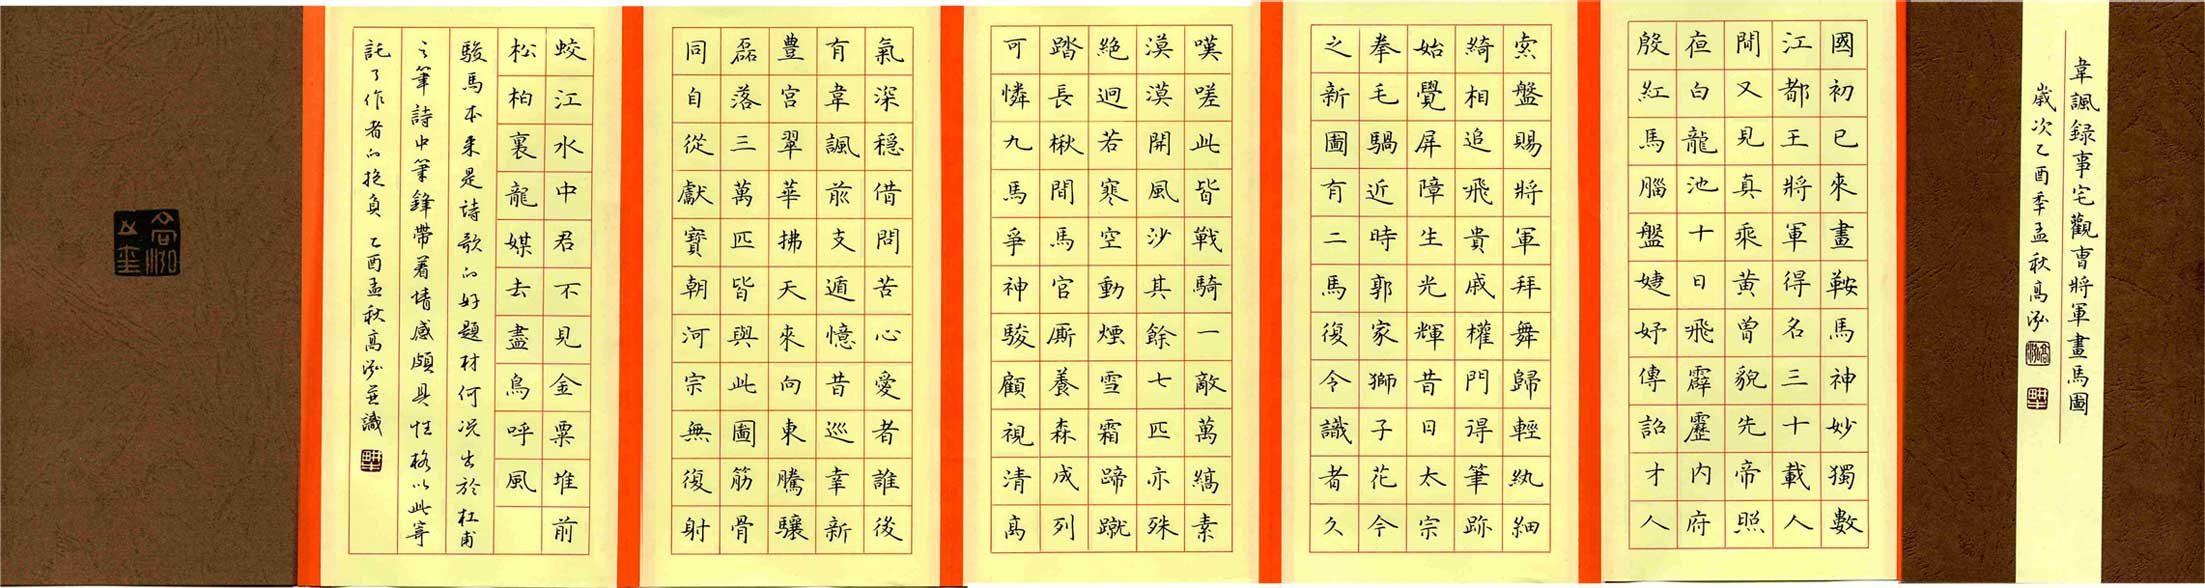 韋諷録事宅觀曹將軍畫馬圖
歲次乙酉季孟秋高泓
國初已來畫鞍馬神妙獨數
江都王將軍得名三十載人
間又見真乘黃曾貌先帝照
夜白龍池十日飛霹靂内府
殷紅馬腦盤婕妤傳詔才人
索盤賜將軍拜舞歸輕紈細
綺相追飛貴戚權門得筆跡
始覺屏障生光輝昔日太宗
拳毛騧近時郭家獅子花今
之新圖有二馬復令識者久
嘆嗟此皆戰騎一敵萬縞素
漠漠開風沙其餘七匹亦殊
絕迥若寒空動煙雪霜蹄蹴
踏長楸間馬官廝養森成列
可憐九馬爭神駿顧視清高
氣深穩借問苦心愛者誰後
有韋諷前支遁憶昔巡幸新
豐宮翠華拂天來向東騰驤
磊落三萬匹皆與此圖筋骨
同自從獻寶朝河宗無復射
蛟江水中君不見金粟堆前
松柏裏龍媒去盡鳥呼風
駿馬本来是詩歌的好題材何况出於杜甫
之筆詩中筆鋒帶着情感頗具性格以此寄
託了作者的抱負 乙酉孟秋高泓並識